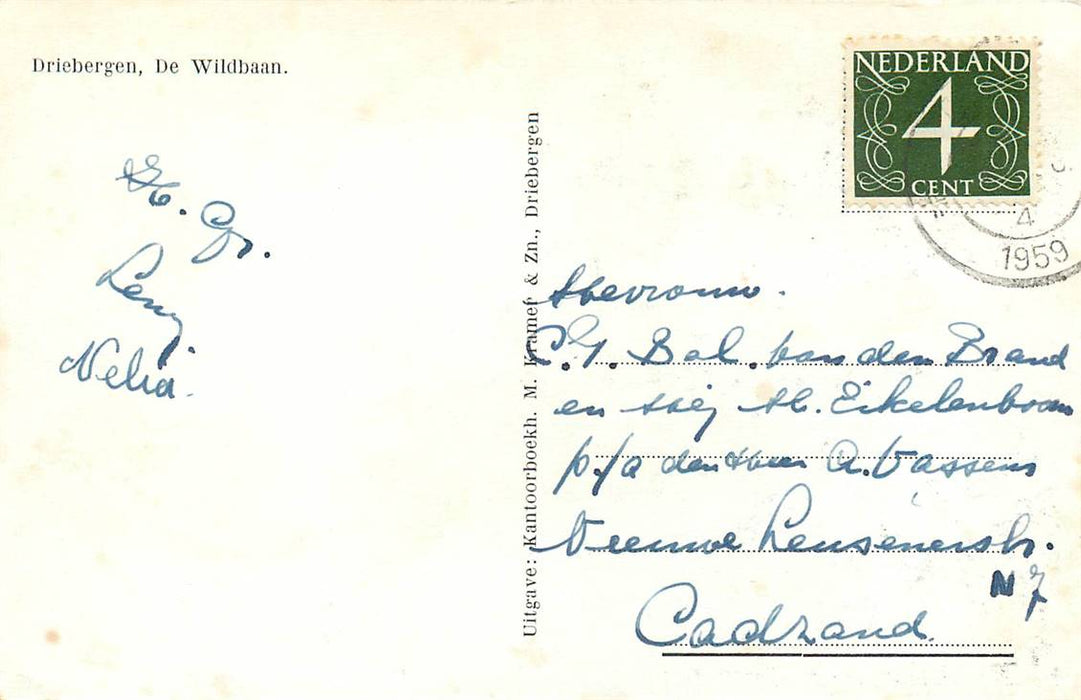 Driebergen, De Wildbaan.
H. Gr.
Leny.
Nelia.
Uitgave: Kantoorboekh. M. Kramer & Zn., Driebergen
NEDERLAND
4
CENT
4
1959
Mevrouw.
C. G. Bal. van den Brand
en Mej M. Eikelenboom
p/a den Heer A. Vassens
Nieuwe
N 7
Cadzand.